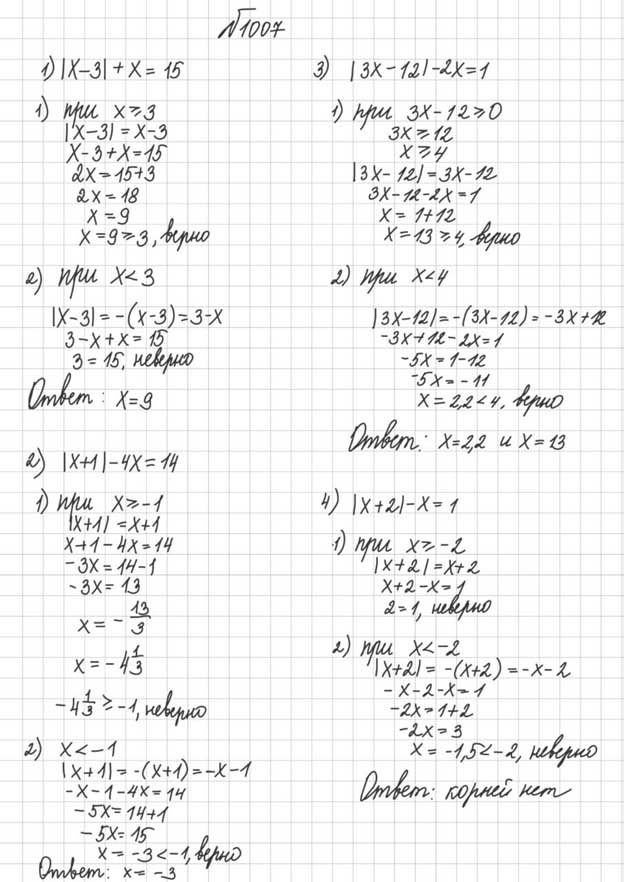 №1007
1) |x-3| + x = 15
1) при x ⩾ 3
|x-3| = x-3
x-3+x=15
2x=15+3
2x=18
x=9
x=9⩾3, верно
2) при x<3
|x-3|=-(x-3)=3-x
3-x+x=15
3=15, неверно
Ответ: x=9
2) |x+1|-4x=14
1) при x⩾-1
|x+1|=x+1
x+1-4x=14
-3x=14-1
-3x=13
x=-13/3
x=-4 1/3
-4 1/3 ⩾ -1, неверно
2) x<-1
|x+1|=-(x+1)=-x-1
-x-1-4x=14
-5x=14+1
-5x=15
x=-3<-1, верно
Ответ: x=-3
3) |3x-12|-2x=1
1) при 3x-12⩾0
3x⩾12
x⩾4
|3x-12|=3x-12
3x-12-2x=1
x=1+12
x=13⩾4, верно
2) при x<4
|3x-12|=-(3x-12)=-3x+12
-3x+12-2x=1
-5x=1-12
-5x=-11
x=2,2<4, верно
Ответ: x=2,2 и x=13
4) |x+2|-x=1
1) при x⩾-2
|x+2|=x+2
x+2-x=1
2=1, неверно
2) при x<-2
|x+2|=-(x+2)=-x-2
-x-2-x=1
-2x=1+2
-2x=3
x=-1,5<-2, неверно
Ответ: корней нет